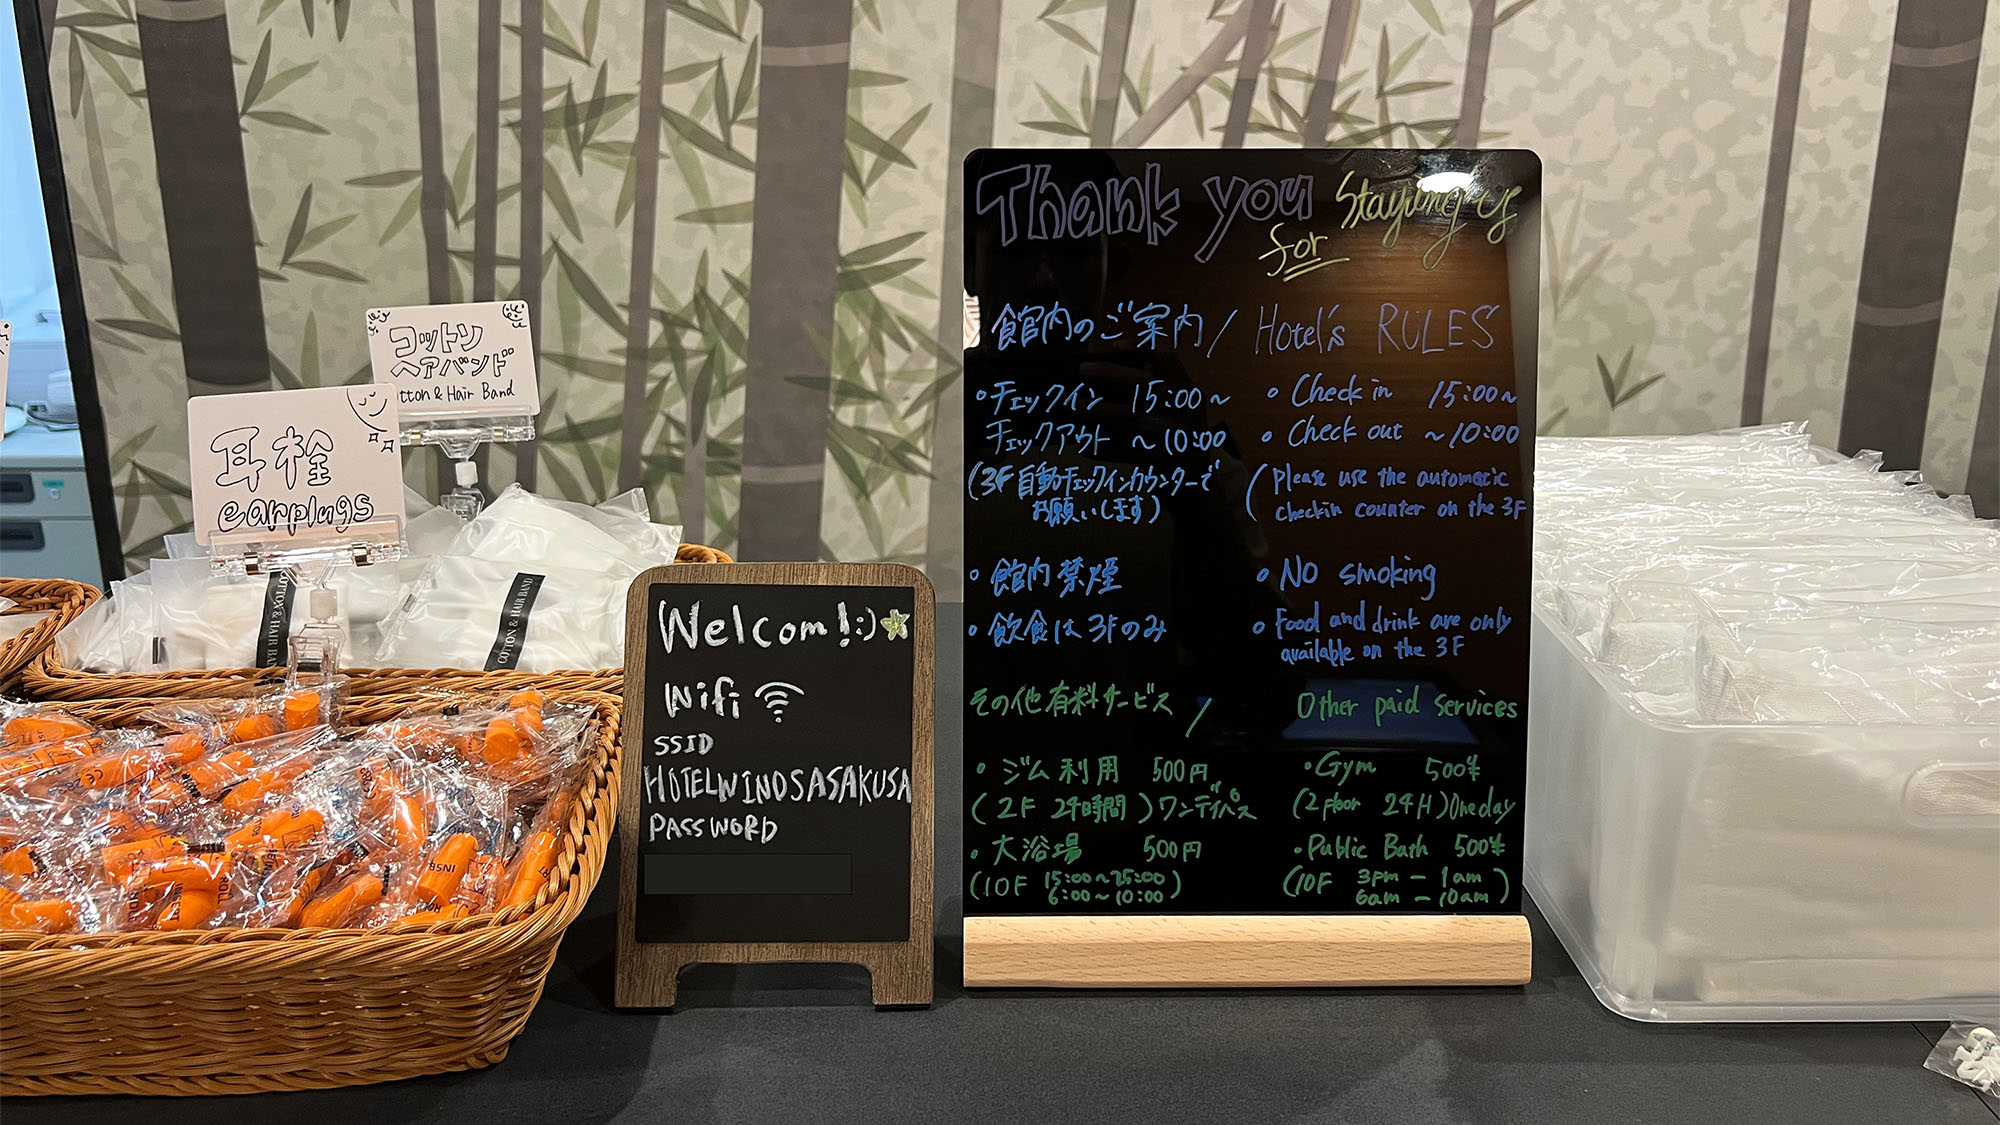 コットン
ヘアバンド
tton & Hair Band
耳栓
earplugs
COTTON & HAIR BAND
COTTON & HAIR BAND
Welcom!:)
Wifi
SSID
HOTELWINDSASAKUSA
PASSWORD
Thank you
for Staying us
館内のご案内/ Hotel's RULES
・チェックイン 15:00～
チェックアウト ～10:00
(3F自動チェックインカウンターで
お願いします)
・館内禁煙
・飲食は3Fのみ
・Check in 15:00～
・Check out ～10:00
(Please use the automatic
checkin counter on the 3F
・No smoking
・Food and drink are only
available on the 3F
その他有料サービス / Other paid services
・ジム利用 500円
(2F 24時間)ワンデイパス
・大浴場 500円
(10F 15:00～25:00
6:00～10:00)
・Gym 500¥
(2floor 24H)Oneday
・Public Bath 500¥
(10F 3pm - 1am
6am - 10am)